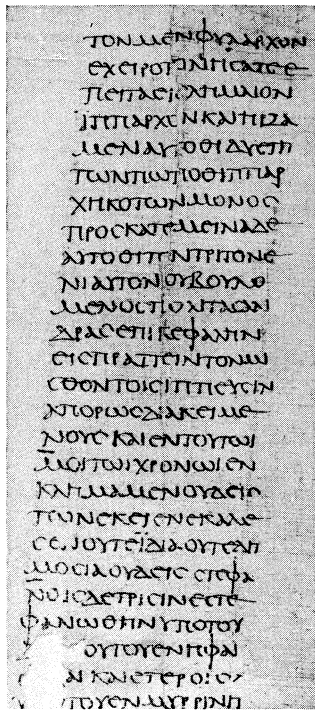 ΤΟΝΜΕΝΦΥΛΑΡΧΟΝ
ΕΧΕΙΡΟΤΟΝΗϹΑΤΕΕ
ΠΕΙΤΑΕΙϹΛΗΜΝΟΝ
ΙΠΠΑΡΧΟΝΚΑΙΗΡΞΑ
ΜΕΝΑΥΤΟΘΙΔΥΕΤΗ
ΤΩΝΠΩΠΟΘΙΠΠΑΡ
ΧΗΚΟΤΩΝΜΟΝΟϹ
ΠΡΟϹΚΑΤΕΜΕΙΝΑΔΕ
ΑΥΤΟΘΙΤΟΝΤΡΙΤΟΝΕ
ΝΙΑΥΤΟΝΟΥΒΟΥΛΟ
ΜΕΝΟϹΠΟΛΙΤΑϹΑΝ
ΔΡΑϹΕΠΙΚΕΦΑΛΗΝ
ΕΙϹΠΡΑΤΤΕΙΝΤΟΝΜΙ
ϹΘΟΝΤΟΙϹΙΠΠΕΥϹΙΝ
ΑΠΟΡΩϹΔΙΑΚΕΙΜΕ
ΝΟΥϹΚΑΙΕΝΤΟΥΤΩΙ
ΜΟΙΤΩΙΧΡΟΝΩΙΕΝ
ΚΛΗΜΑΜΕΝΟΥΔΕΙϹ
ΤΩΝΕΚΕΙΕΝΕΚΑΛΕ
ϹΕΝΟΥΤΕΪΔΙΑΟΥΤΕΔΗ
ΜΟϹΙΑΟΥΔΕΙϹ ϹΤΕΦΑ
ΝΟΙϹΔΕΤΡΙϹΙΝΕϹΤΕ
ΦΑΝΩΘΗΝΥΠΟΤΟΥ
ΟΥΤΟΥΕΝΗΦΑΙ
ΑΙΚΑΙΕΤΕΡΟΙϹ
ΤΟΥΕΝΜΥΡΡΙΝΗ